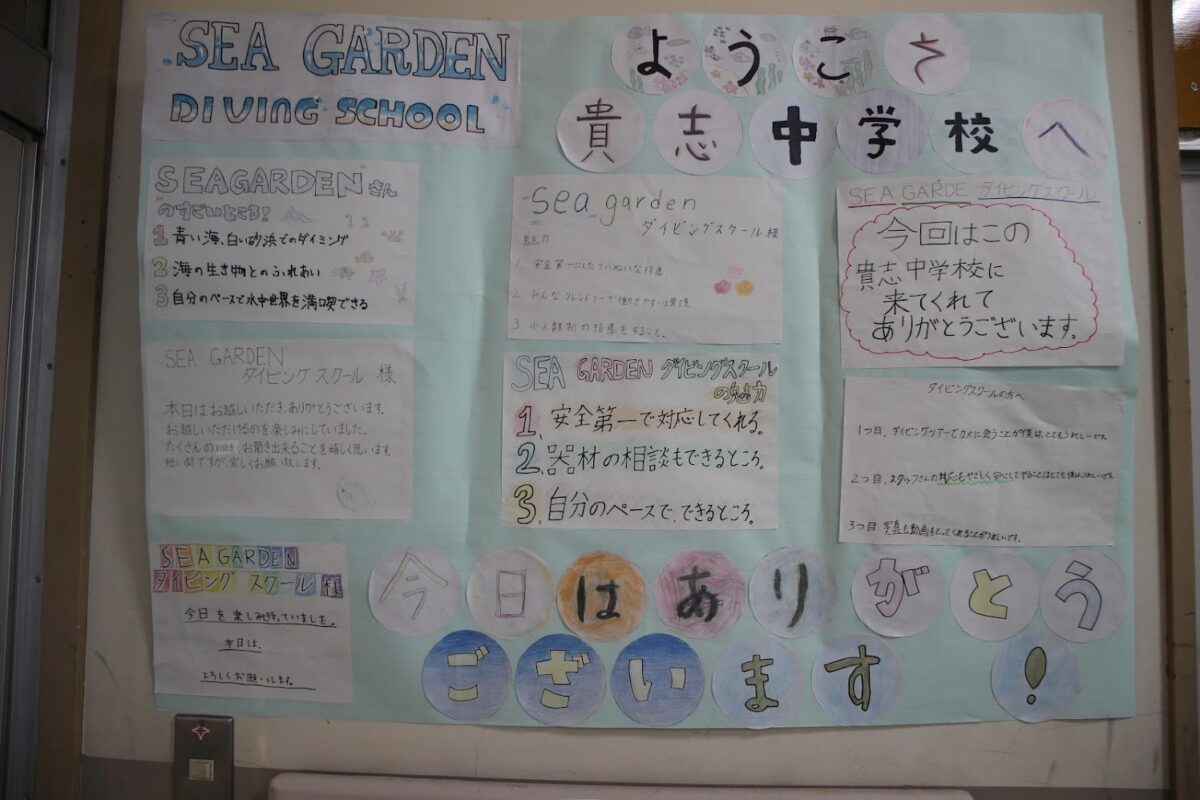 SEA GARDEN
DIVING SCHOOL
ようこそ
貴志中学校へ
SEAGARDENさん
のすごいところ!
1 青い海、白い砂浜でのダイミング
2 海の生き物とのふれあい
3 自分のペースで水中世界を満喫できる
sea garden
ダイビングスクール様
魅力
1. 安全第一にしたていねいな指導。
2. みんなフレンドリーで働きやすい環境。
3. 小人数制の指導をすること。
SEA GARDE ダイビングスクール
今回はこの
貴志中学校に
来てくれて
ありがとうございます。
SEA GARDEN
ダイビングスクール 様
本日はお越しいただき、ありがとうございます。
お越しいただけるのを楽しみにしていました。
たくさんのお話をお聞き出来ることを嬉しく思います。
短い間ですが、宜しくお願い致します。
SEA GARDEN ダイビングスクール
の魅力
1、安全第一で対応してくれる。
2、器材の相談もできるところ。
3、自分のペースで、できるところ。
ダイビングスクールの方へ
1つ目、ダイビングツアーでカメに会うことが僕は、とてもうれしいです。
2つ目、スタッフさんの対応もやさしく安心して
3つ目、写真も動画もとってくれることがうれしいです。
SEA GARDEN
ダイビング スクール 様
今日を楽しみ待っていました。
本日は、
よろしくお願いします。
今日はありがとう
ございます!